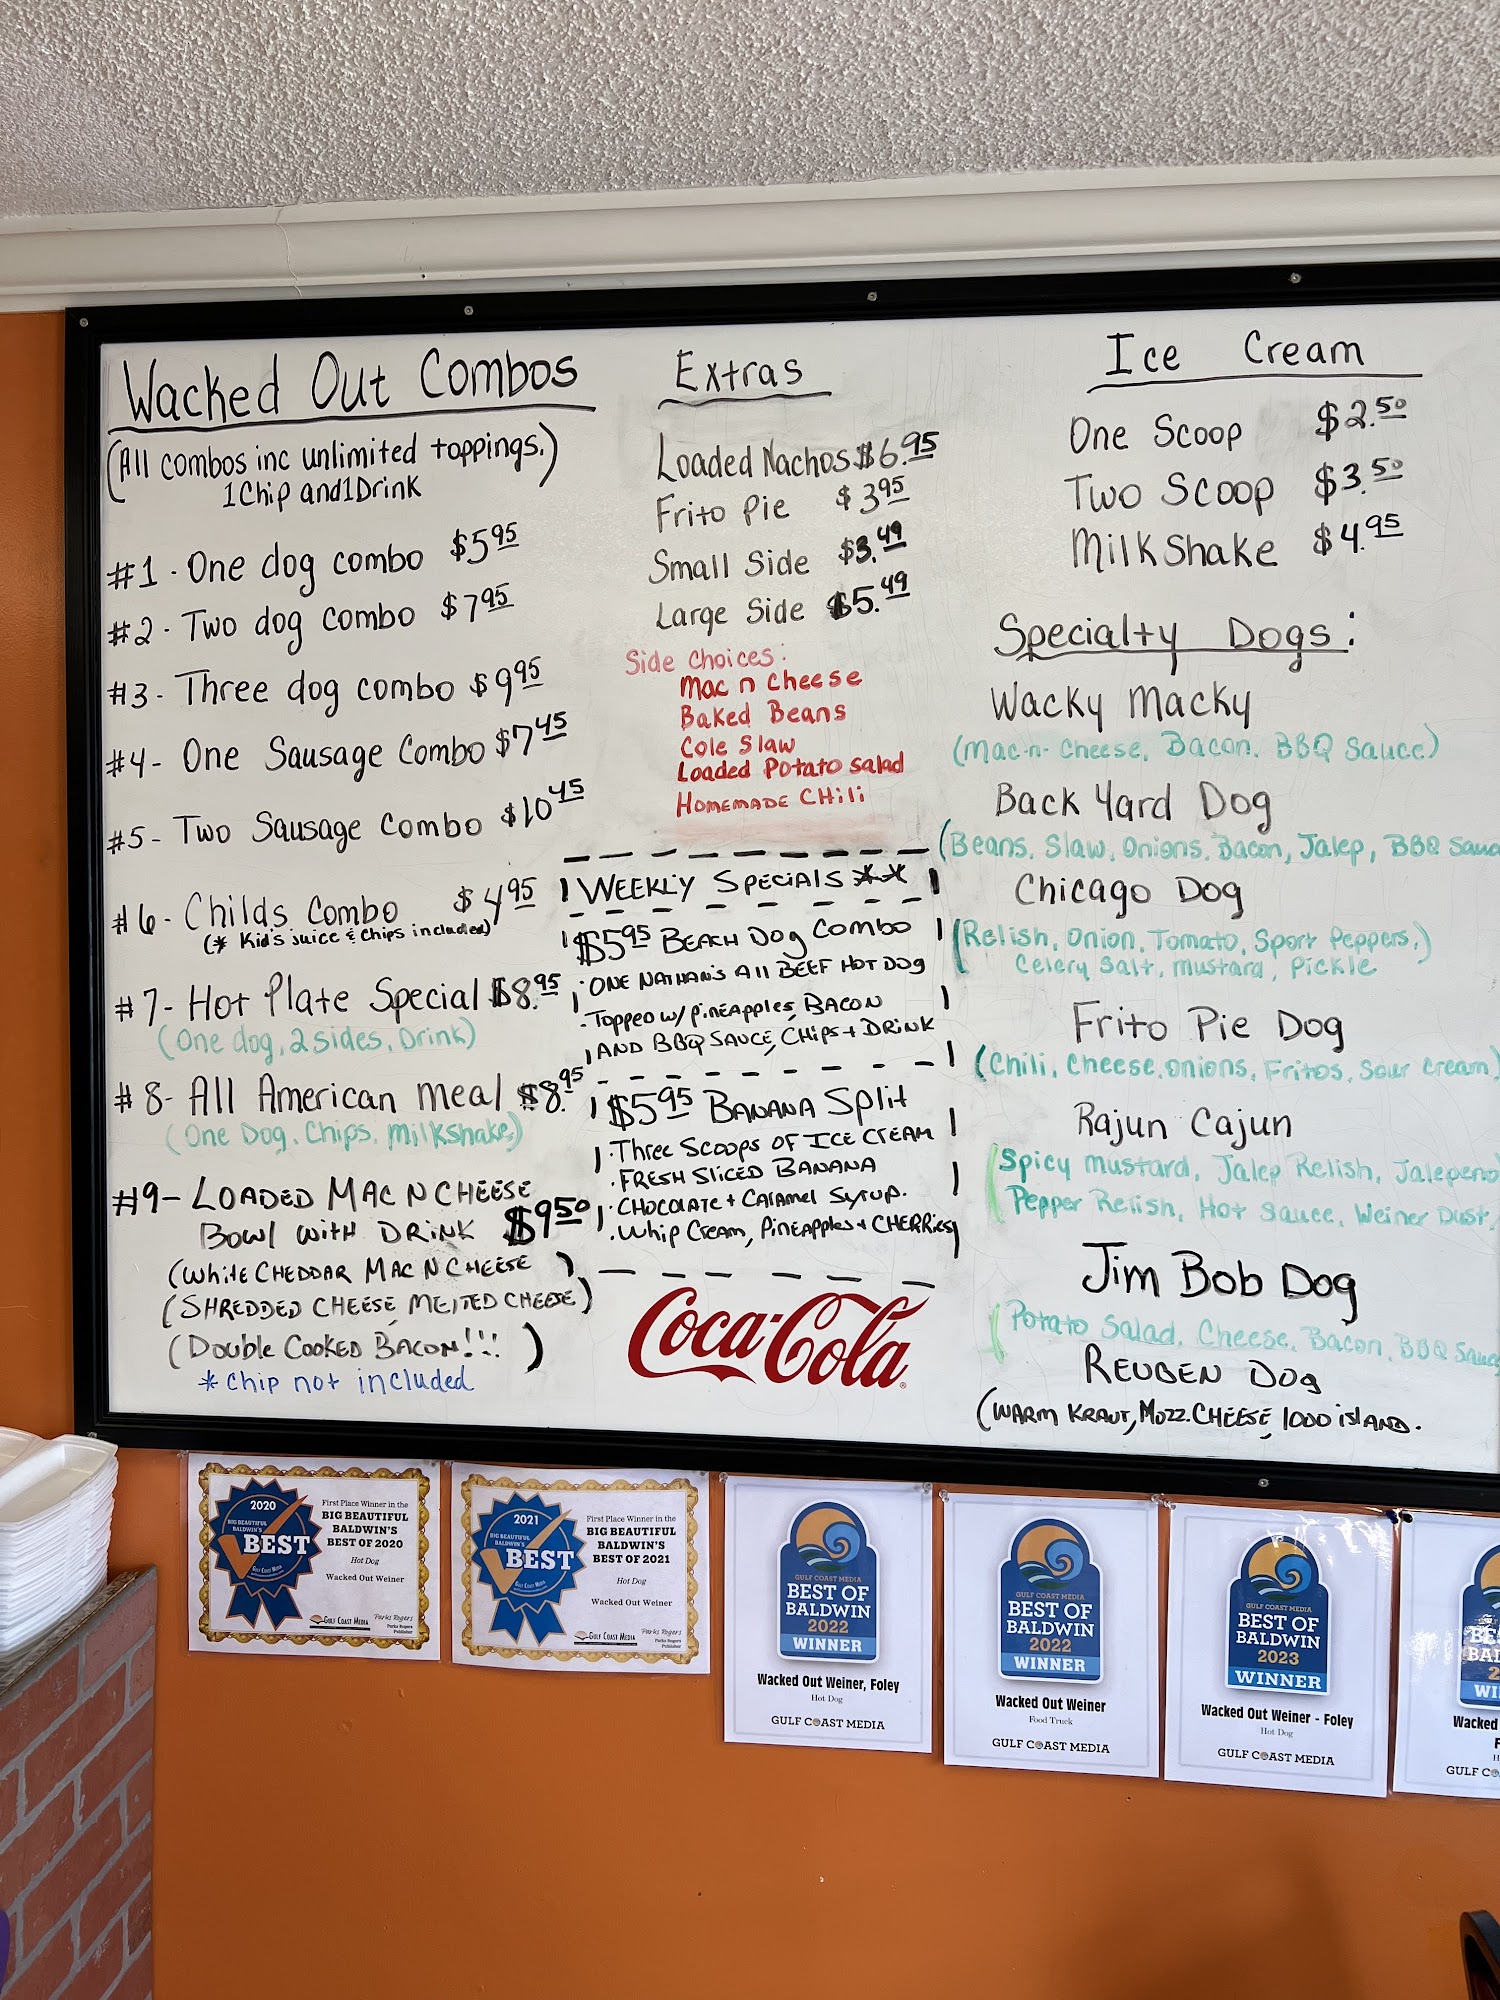 Wacked Out Combos
(All combos inc unlimited toppings.)
1 Chip and 1 Drink
#1 - One dog combo $5.95
#2 - Two dog combo $7.95
#3 - Three dog combo $9.95
#4 - One Sausage Combo $7.45
#5 - Two Sausage Combo $10.45
#6 - Childs Combo $4.95
(* Kid's juice & chips included)
#7 - Hot Plate Special $8.95
(One dog, 2 sides, Drink)
#8 - All American Meal $8.95
(One Dog, Chips, Milkshake)
#9 - LOADED MAC N CHEESE
BOWL WITH DRINK $9.50
(WHITE CHEDDAR MAC N CHEESE)
(SHREDDED CHEESE, MELTED CHEESE)
(DOUBLE COOKED BACON!!!)
* Chip not included
Extras
Loaded Nachos $6.95
Frito Pie $3.95
Small Side $3.49
Large Side $5.49
Side Choices:
Mac n Cheese
Baked Beans
Cole Slaw
Loaded Potato salad
HOMEMADE CHili
WEEKLY SPECIALS **
$5.95 BEACH DOG COMBO
· ONE NATHAN'S All BEEF HOT DOG
· TOPPED W/ PINEAPPLES, BACON
AND BBQ SAUCE, CHIPS + DRINK
$5.95 BANANA Split
· THREE SCOOPS OF ICE CREAM
· FRESH SLICED BANANA
· CHOCOLATE + CARAMEL SYRUP.
· WHIP CREAM, PINEAPPLES + CHERRIES
Coca-Cola
Ice Cream
One Scoop $2.50
Two Scoop $3.50
MilkShake $4.95
Specialty Dogs:
Wacky Macky
(Mac-n-Cheese, Bacon, BBQ Sauce)
Back Yard Dog
(Beans, Slaw, Onions, Bacon, Jalep, BBQ Sauc
Chicago Dog
(Relish, Onion, Tomato, Sport Peppers,)
Celery Salt, mustard, Pickle
Frito Pie Dog
(Chili, Cheese, Onions, Fritos, Sour cream)
Rajun Cajun
(Spicy mustard, Jalep Relish, Jalapeno
Pepper Relish, Hot Sauce, Weiner Dust,
Jim Bob Dog
(Potato Salad, Cheese, Bacon, BBQ Sauce
REUBEN DOG
(WARM KRAUT, MOZZ. CHEESE, 1000 iSLAND.
2020
BIG BEAUTIFUL
BALDWIN'S
BEST
GULF COAST MEDIA
First Place Winner in the
BIG BEAUTIFUL
BALDWIN'S
BEST OF 2020
Hot Dog
Wacked Out Weiner
GULF COAST MEDIA
Parks Rogers
Parks Rogers
Publisher
2021
BIG BEAUTIFUL
BALDWIN'S
BEST
GULF COAST MEDIA
First Place Winner in the
BIG BEAUTIFUL
BALDWIN'S
BEST OF 2021
Hot Dog
Wacked Out Weiner
GULF COAST MEDIA
Parks Rogers
Parks Rogers
Publisher
GULF COAST MEDIA
BEST OF
BALDWIN
2022
WINNER
Wacked Out Weiner, Foley
Hot Dog
GULF COAST MEDIA
GULF COAST MEDIA
BEST OF
BALDWIN
2022
WINNER
Wacked Out Weiner
Food Truck
GULF COAST MEDIA
GULF COAST MEDIA
BEST OF
BALDWIN
2023
WINNER
Wacked Out Weiner - Foley
Hot Dog
GULF COAST MEDIA
BES
BAL
2
WI
Wacked
F
H
GULF CO